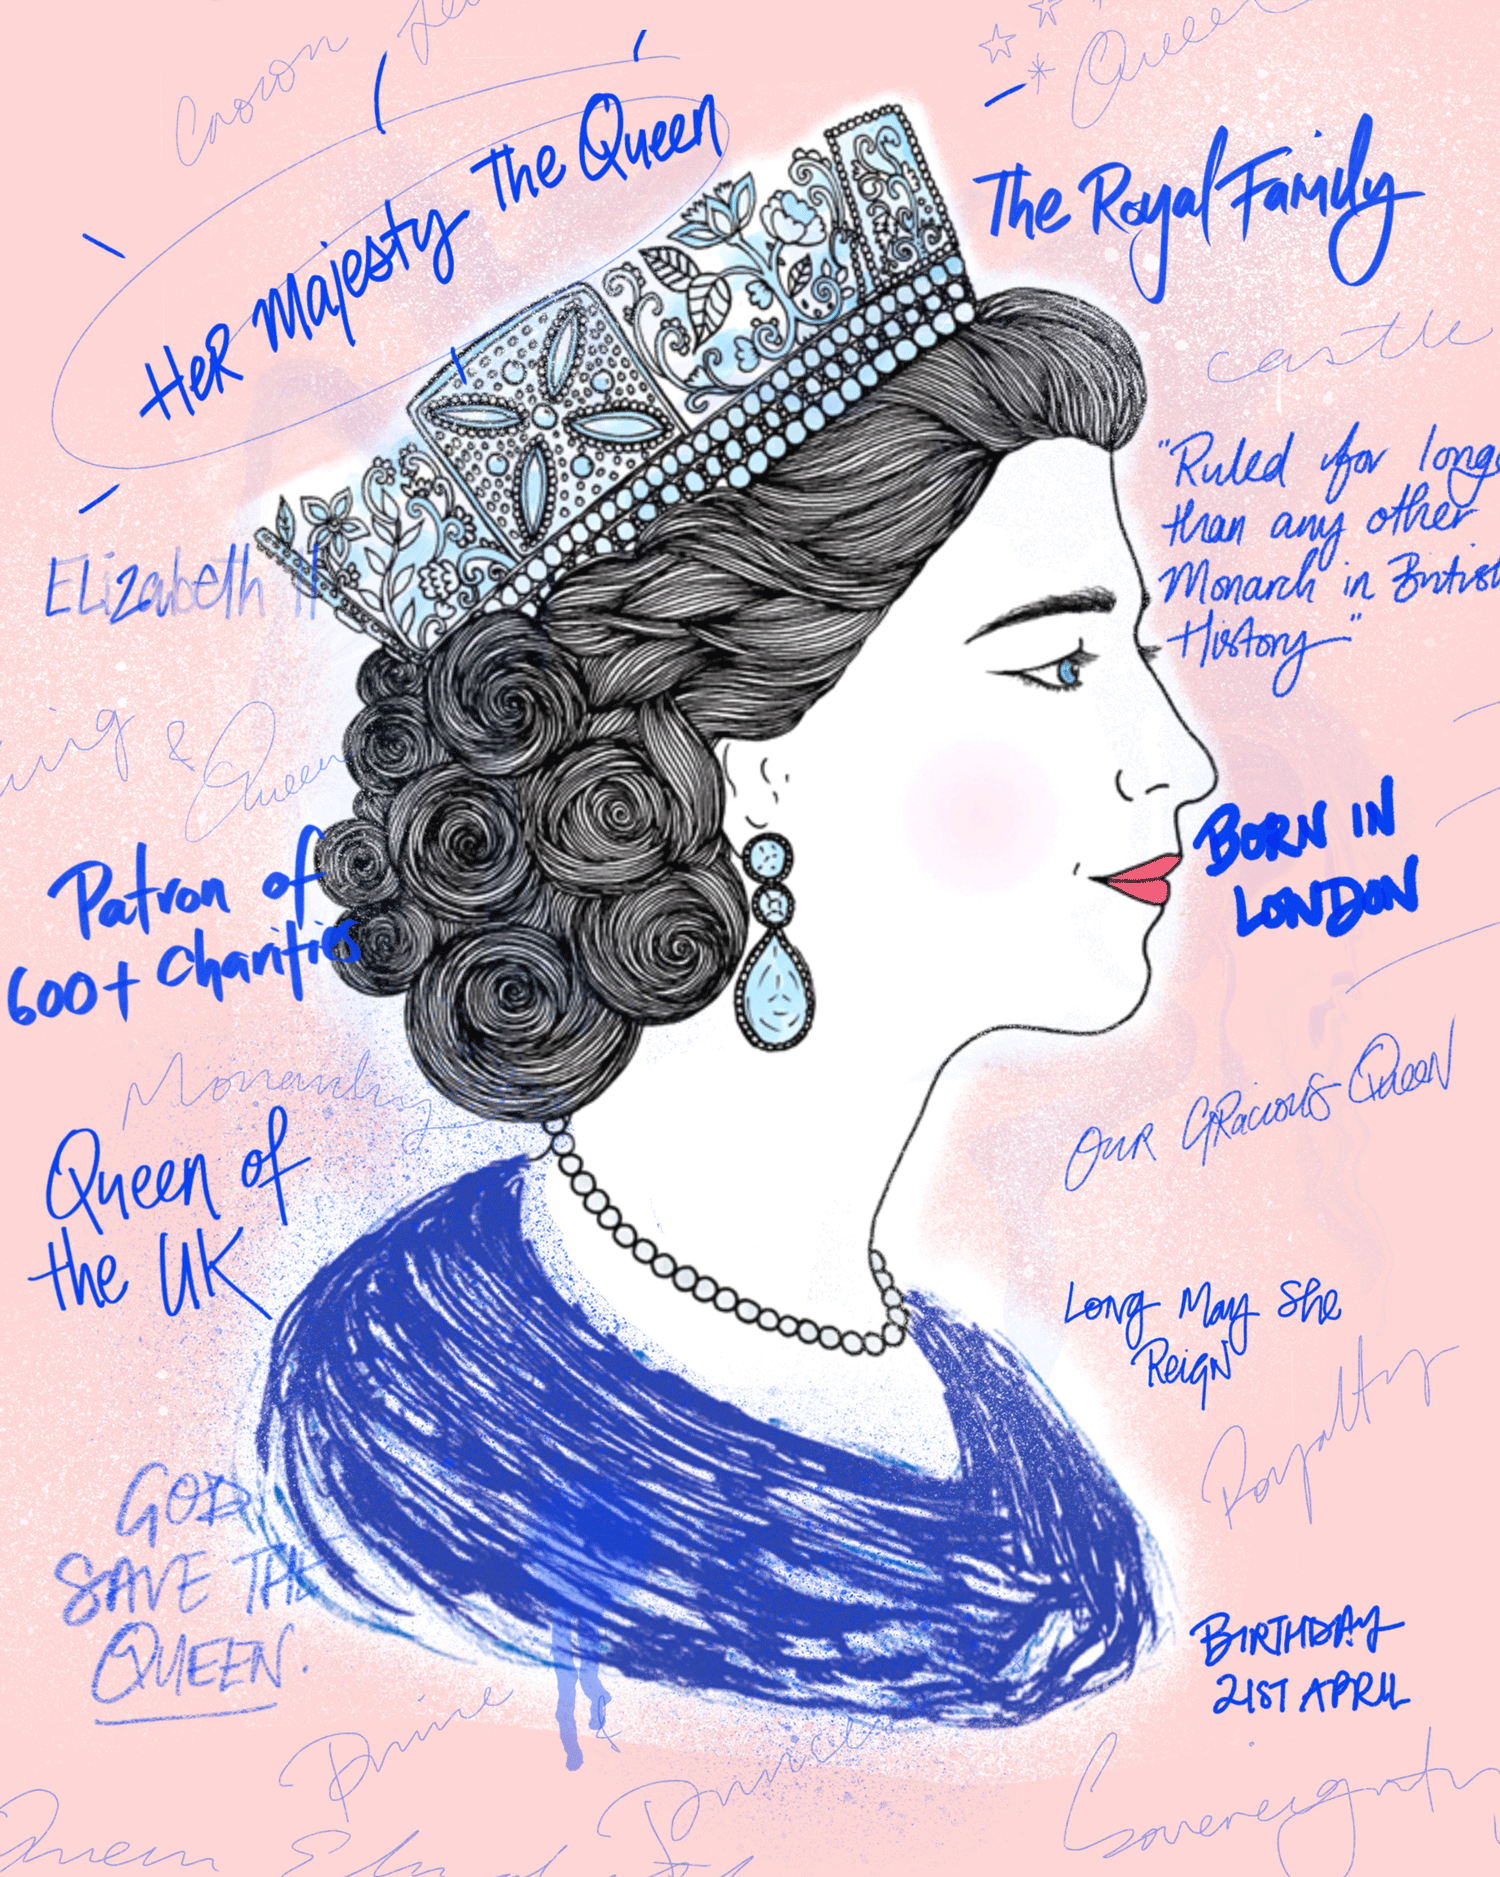 Crown
Queen
Her Majesty The Queen
The Royal Family
castle
"Ruled for longe
than any other
Monarch in British
History"
Elizabeth II
King & Queen
Born in
London
Patron of
600+ Charities
Monarchy
Our Gracious Queen
Queen of
the UK
Long May She
Reign
Royalty
God
Save The
Queen.
Birthday
21st April
Prince & Princess
Sovereignty
Queen Elizabeth